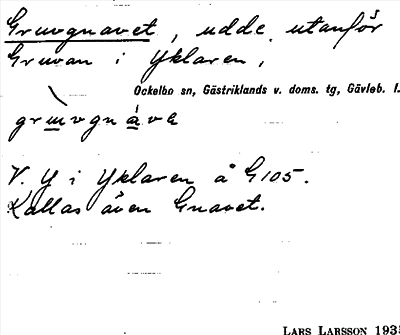 Gruvgnavet, udde utanför
Gruvan i Yklaren,
Ockelbo sn, Gästriklands v. doms. tg, Gävleb. l.
grùvgnàva
V. Y i Yklaren å G105.
Kallas även Gnavet.
LARS LARSSON 193